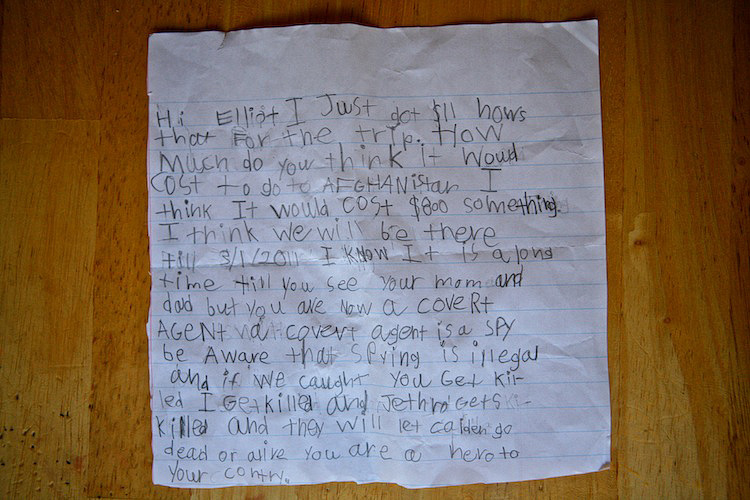 Hi Elliot I Just got $11 hows
that For the trip. How
Much do you think It woud
COST to go to AFGHANistan I
think It would COST $800 something.
I think we will be there
till 3/1/2011 I KNOW It is a long
time till you see your mom and
dad but you are now a COVERt
AGENt a covert agent is a SPY
be Aware that SPying is illegal
and if we caught you Get Kil-
led I Get killed and Jethro Gets
killed and they will let caiden go
dead or alive you are a hero to
your contry.